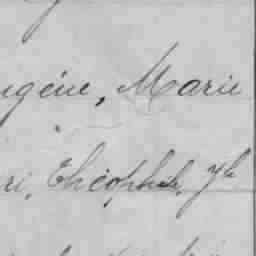 ugéne, Marie
ri, Théophile,